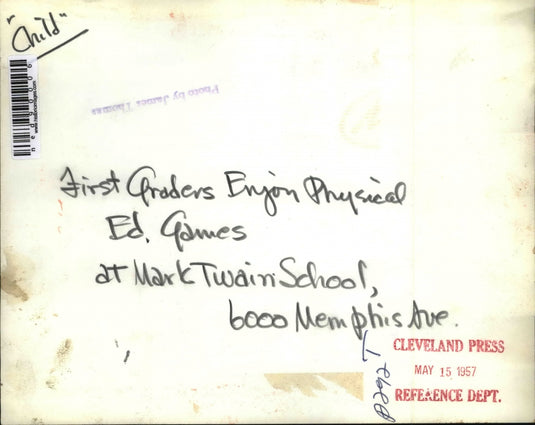 "Child"
Photo by James Thomas
First Graders Enjoy Physical
Ed. Games
at Mark Twain School,
6000 Memphis Ave.
CLEVELAND PRESS
MAY 15 1957
REFERENCE DEPT.